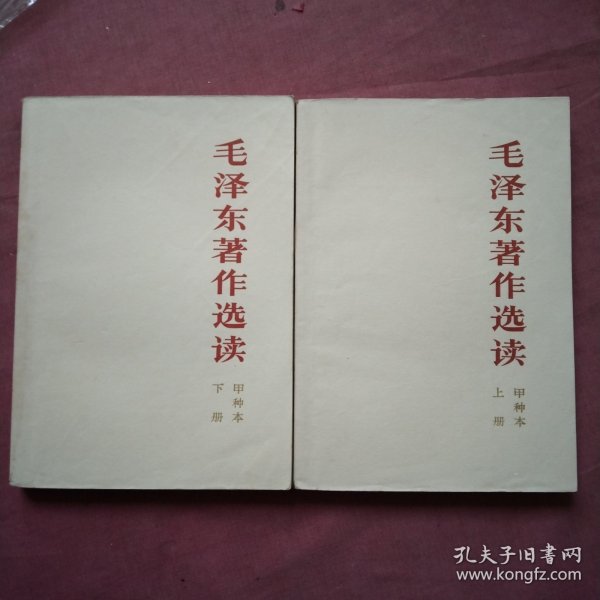 毛泽东著作选读
甲种本
下册
毛泽东著作选读
甲种本
上册
孔夫子旧书网
www.kongfz.com